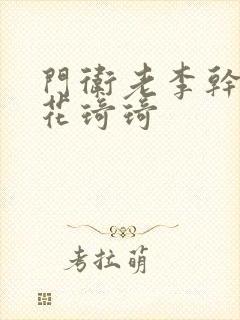 門衛老李幹
花琦琦
考拉萌